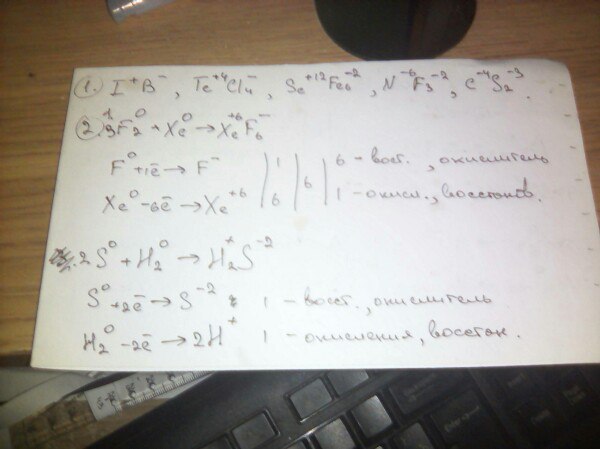 1. I⁺B⁻, Te⁺⁴Cl₄⁻, Se⁺¹²Fe₆⁻², N⁻⁶F₃⁻², C⁻⁴S₂⁻³.
2. 3F₂⁰ + Xe⁰ → Xe⁺⁶F₆⁻
F⁰ +1ē → F⁻ | 1 | | 6 - восст., окислитель
Xe⁰ -6ē → Xe⁺⁶ | 6 | 6 | 1 - окисл., восстанов.
2. S⁰ + H₂⁰ → H₂⁺S⁻²
S⁰ +2ē → S⁻² 1 - восст., окислитель
H₂⁰ -2ē → 2H⁺ 1 - окисления, восстан.